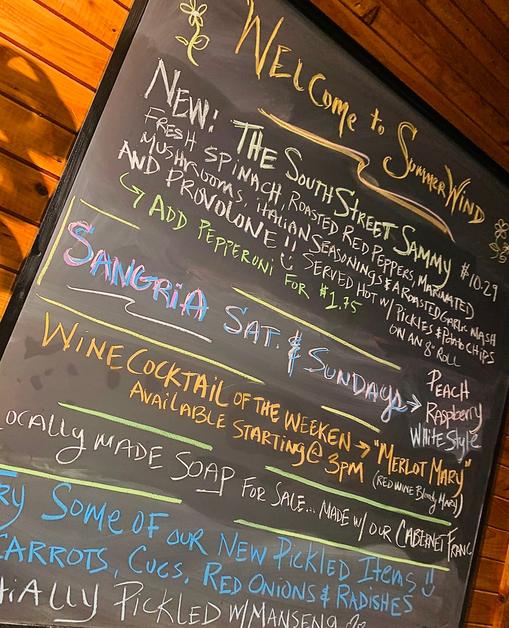 Welcome to SummerWind
NEW: THE SOUTH STREET SAMMY $10.29
FRESH SPINACH, ROASTED RED PEPPERS, MARINATED
MUSHROOMS, ITALIAN SEASONINGS & A ROASTED GARLIC MASH
AND PROVOLONE!! SERVED HOT W/ PICKLES & POTATO CHIPS
ON AN 8" ROLL
ADD PEPPERONI FOR $1.75
SANGRIA SAT. & SUNDAYS → PEACH
Raspberry
White Style
WINE COCKTAIL OF THE WEEKEN → "MERLOT MARY"
AVAILABLE STARTING @ 3PM (RED WINE Bloody MARY)
OCALLY MADE SOAP FOR SALE... MADE W/ OUR CABERNET FRANC
RY SOME OF OUR NEW PICKLED ITEMS
CARROTS, CUCS, RED ONIONS & RADISHES
TIALLY PICKLED W/ MANSENG